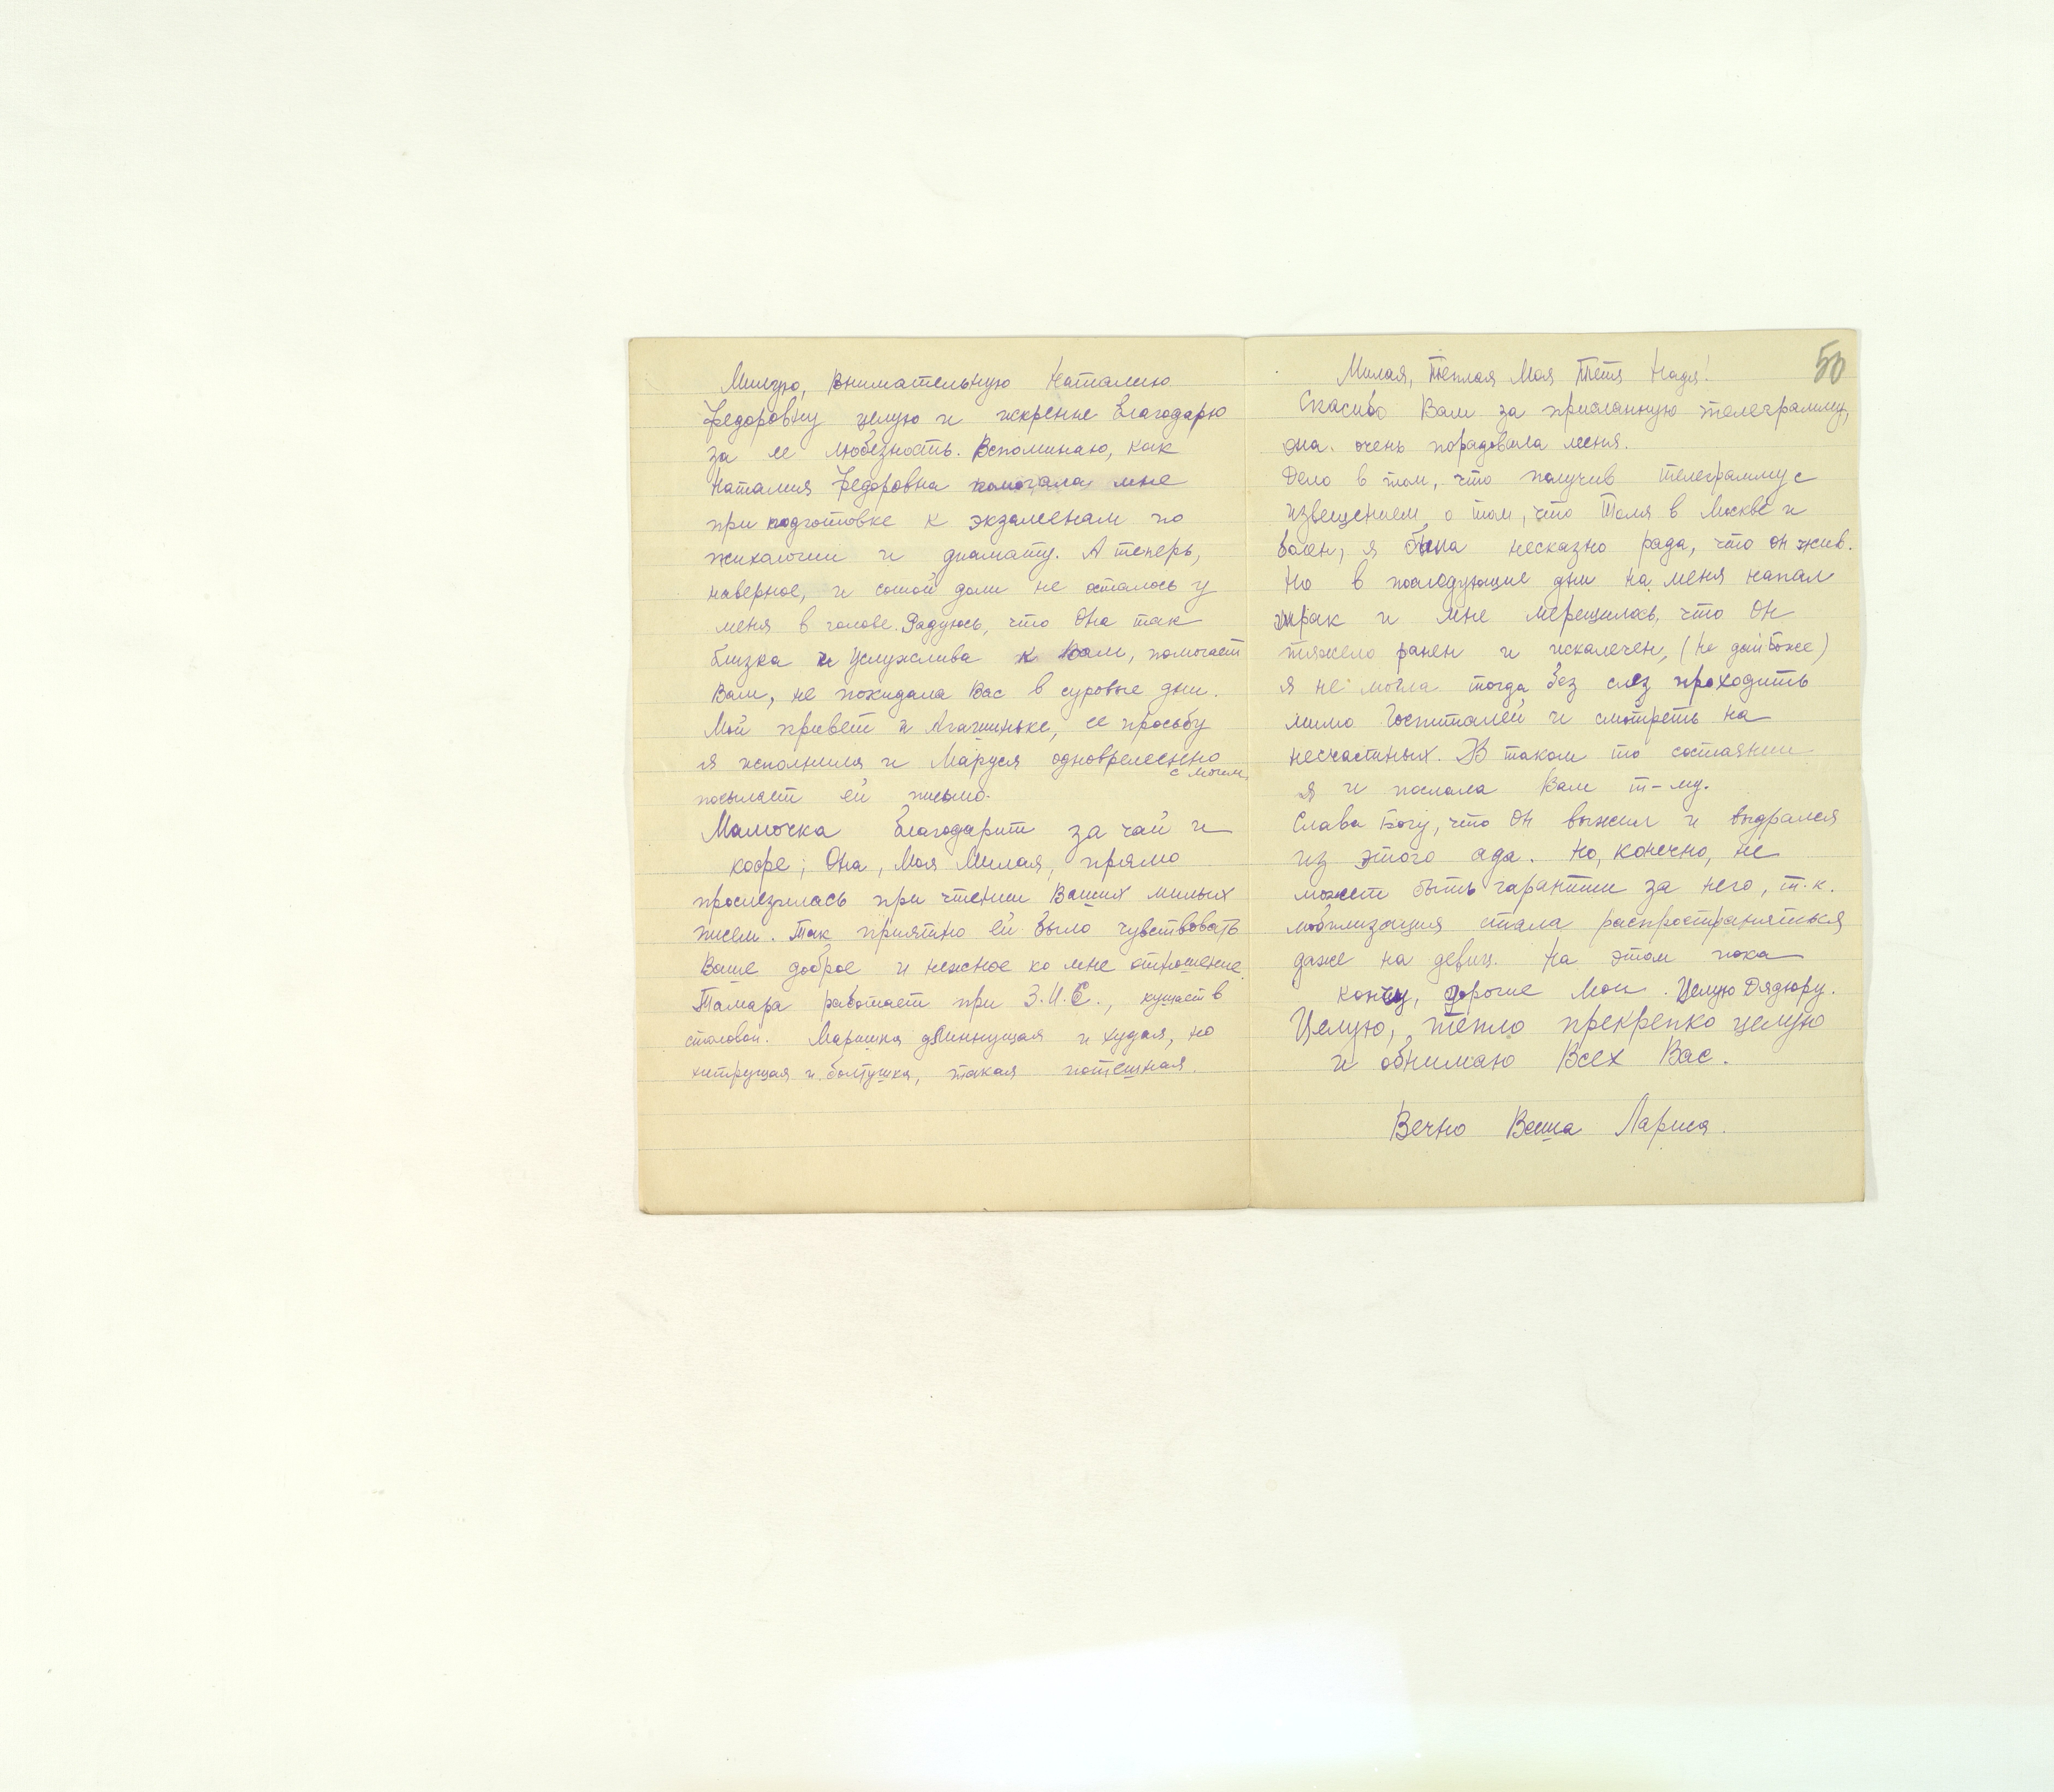 Милую, внимательную Наталию
Федоровну целую и искренне благодарю
за ее любезность. Вспоминаю, как
Наталия Федоровна помогала мне
при подготовке к экзаменам по
психологии и диамату. А теперь,
наверное, и сотой доли не осталось у
меня в голове. Радуюсь, что Она так
близка и услужлива к Вам, помогает
Вам, не покидала Вас в суровые дни.
Мой привет и Агашиньке, ее просьбу
я исполнила и Маруся одновременно
с моим,
посылает ей письмо.
Мамочка благодарит за чай и
кофе; Она, Моя Милая, прямо
прослезилась при чтении Ваших милых
писем. Так приятно ей было чувствовать
Ваше доброе и нежное ко мне отношение.
Тамара работает при З.И.С., кушает в
столовой. Маришка длиннущая и худая, но
хитрущая и болтушка, такая потешная.
50
Милая, Тёплая Моя Тётя Надя!
Спасибо Вам за присланную телеграмму,
она очень порадовала меня.
Дело в том, что получив телеграмму с
извещением о том, что Толя в Москве и
болен, я была несказно рада, что он жив.
Но в последующие дни на меня напал
мрак и мне мерещилось, что Он
тяжело ранен и искалечен, (Не дай Боже)
я не могла тогда без слез проходить
мимо Госпиталей и смотреть на
несчастных. В таком то состоянии
я и послала Вам т-му.
Слава Богу, что Он выжил и выдрался
из этого ада. Но, конечно, не
может быть гарантии за него, т.к.
мобилизация стала распространяться
даже на девиц. На этом пока
кончу, дорогие Мои. Целую Дядюру.
Целую, тепло прекрепко целую
и обнимаю Всех Вас.
Вечно Ваша Лариса.